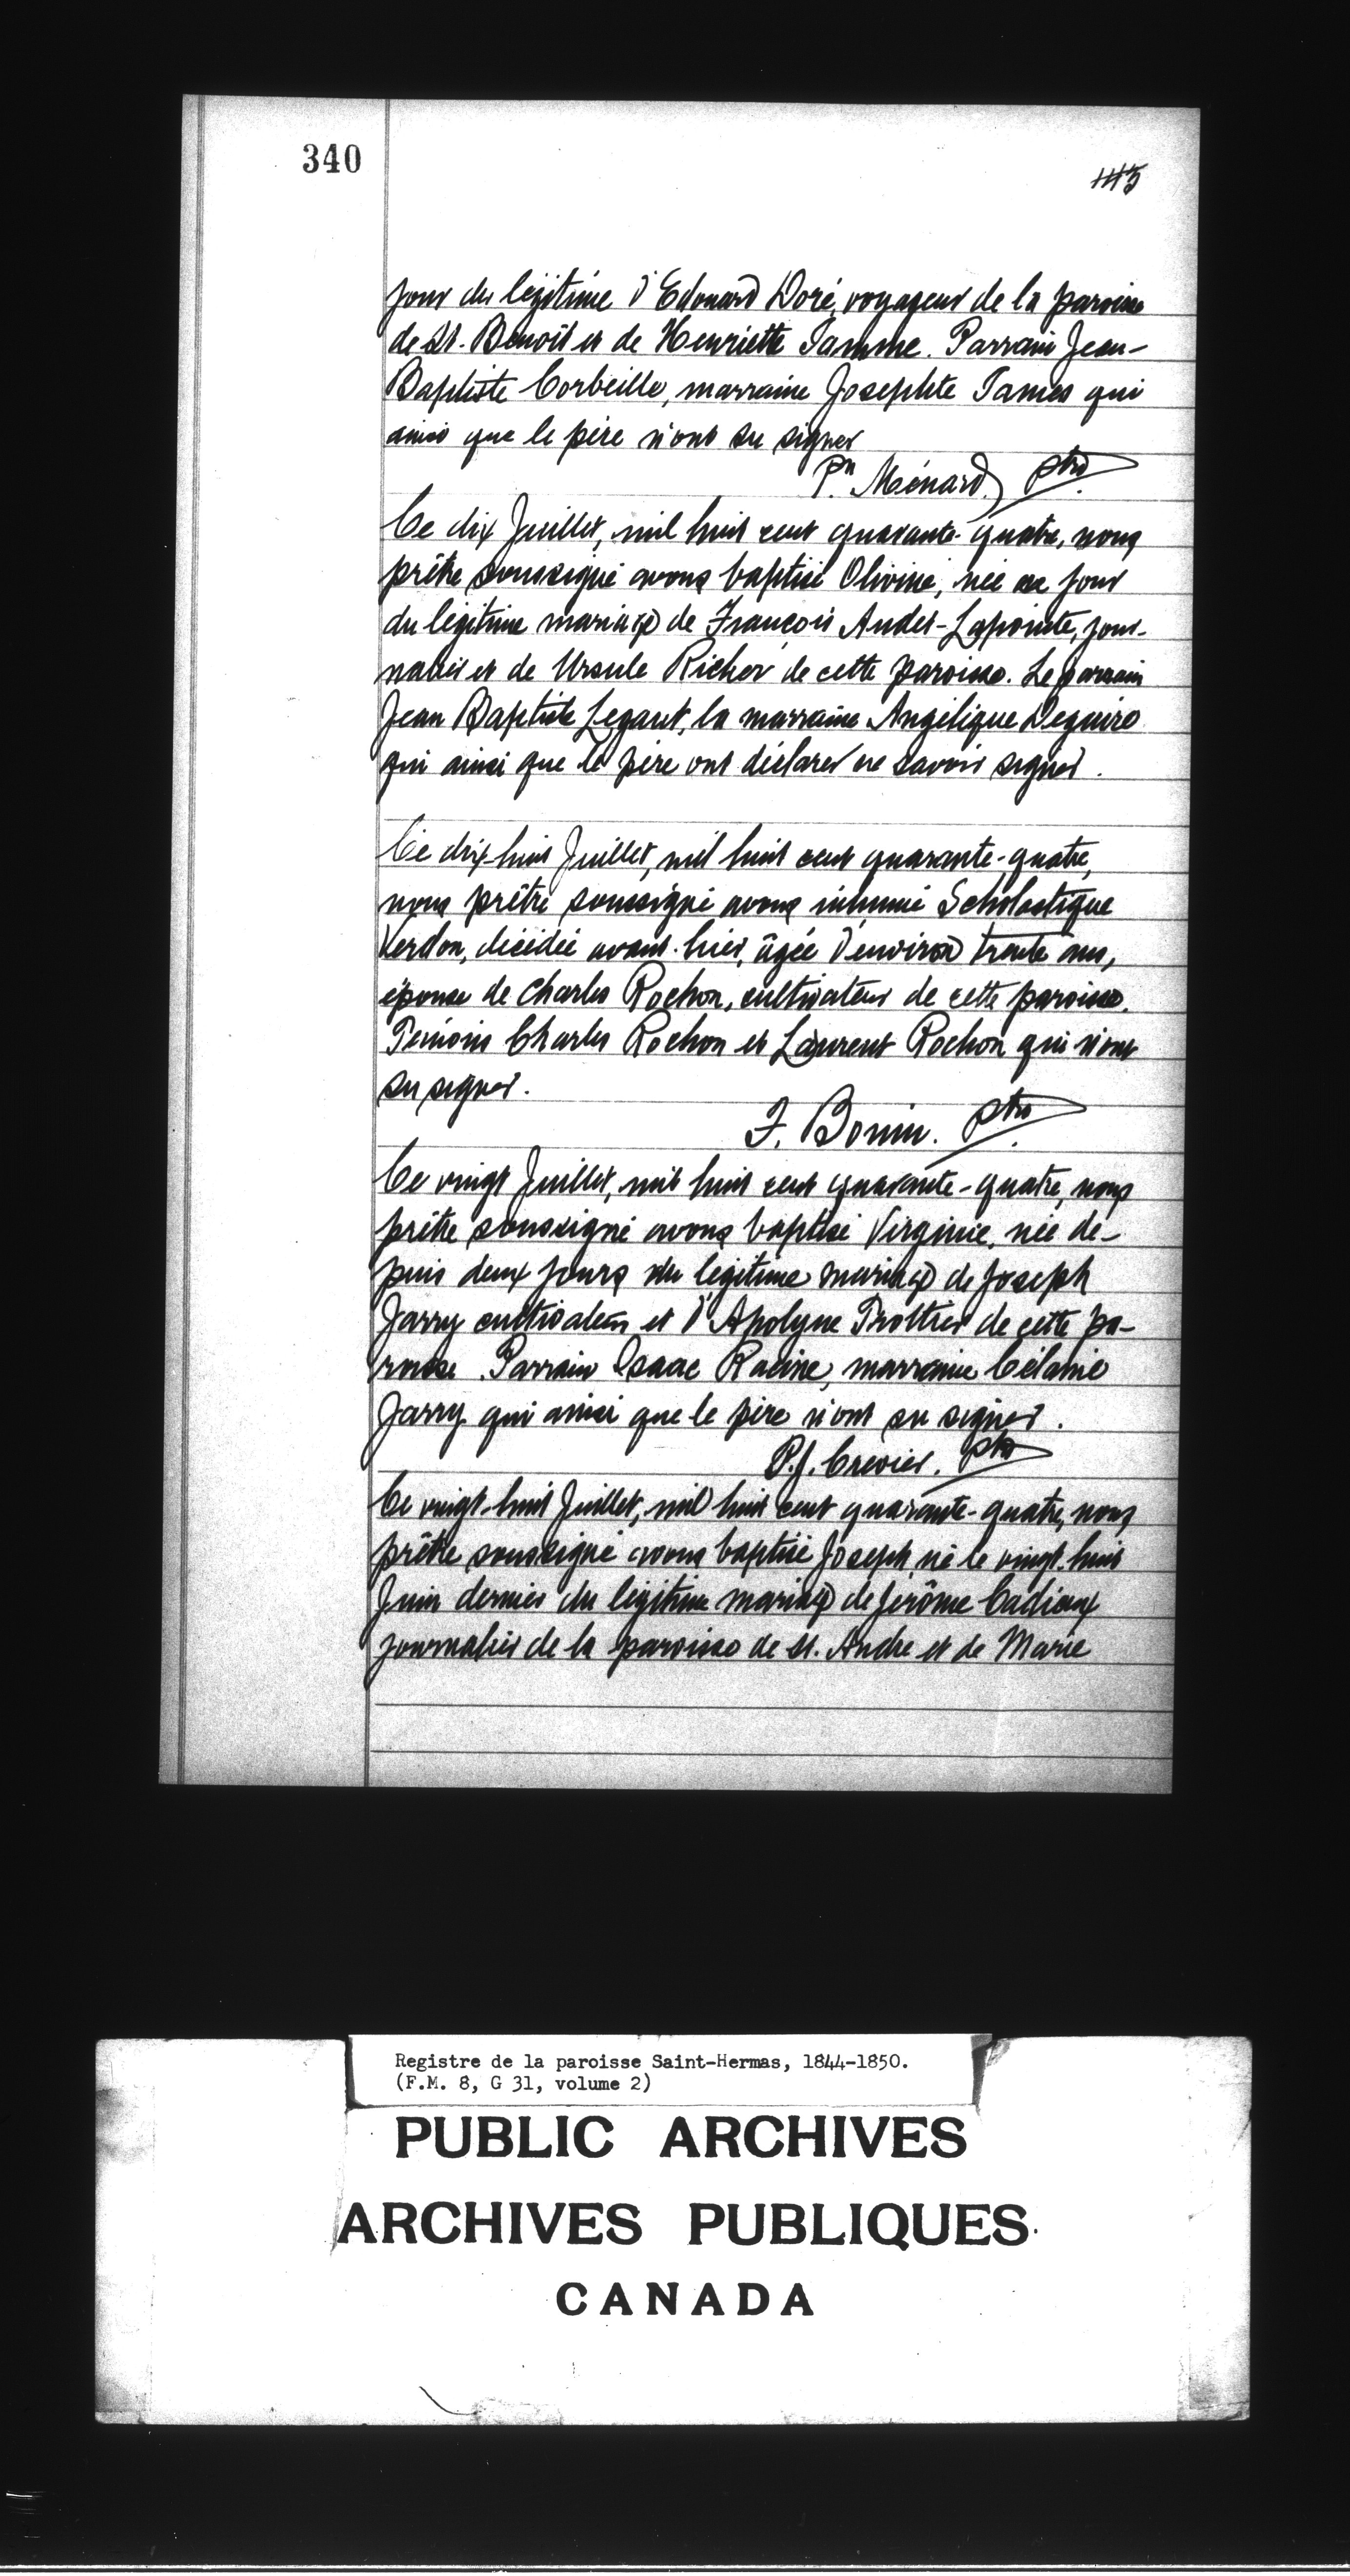 340
115
jour du légitime d'Edouard Doré, voyageur de la paroisse
de St. Benoît et de Henriette Jamme. Parrain Jean-
Baptiste Corbeille, marraine Josephte James qui
ainsi que le père n'ont su signer
Pn. Ménard, ptre
Ce dix Juillet, mil huit cent quarante-quatre, nous
prêtre soussigné avons baptisé Olivine, née ce jour
du légitime mariage de François Audet-Lapointe, jour-
nalier et de Ursule Richer de cette paroisse. Le parrain
Jean Baptiste Legaut, la marraine Angélique Deguire
qui ainsi que le père ont déclarer ne savoir signer.
Ce dix-huit Juillet, mil huit cent quarante-quatre,
nous prêtre soussigné avons inhumé Scholastique
Verdon, décédée avant-hier, âgée d'environ trente ans,
épouse de Charles Rochon, cultivateur de cette paroisse.
Témoins Charles Rochon et Laurent Rochon qui n'ont
su signer.
F. Bonin. ptre
Ce vingt Juillet, mil huit cent quarante-quatre, nous
prêtre soussigné avons baptisé Virginie, née de-
puis deux jours du légitime mariage de Joseph
Jarry cultivateur et d'Apolyne Trottier de cette pa-
roisse. Parrain Isaac Racine, marraine Célanie
Jarry qui ainsi que le père n'ont su signer.
P.J. Crevier. ptre
Ce vingt-huit Juillet, mil huit cent quarante-quatre, nous
prêtre soussigné avons baptisé Joseph né le vingt-huit
Juin dernier du légitime mariage de Jérôme Cadieux
journalier de la paroisse de St. André et de Marie
Registre de la paroisse Saint-Hermas, 1844-1850.
(F.M. 8, G 31, volume 2)
PUBLIC ARCHIVES
ARCHIVES PUBLIQUES
CANADA